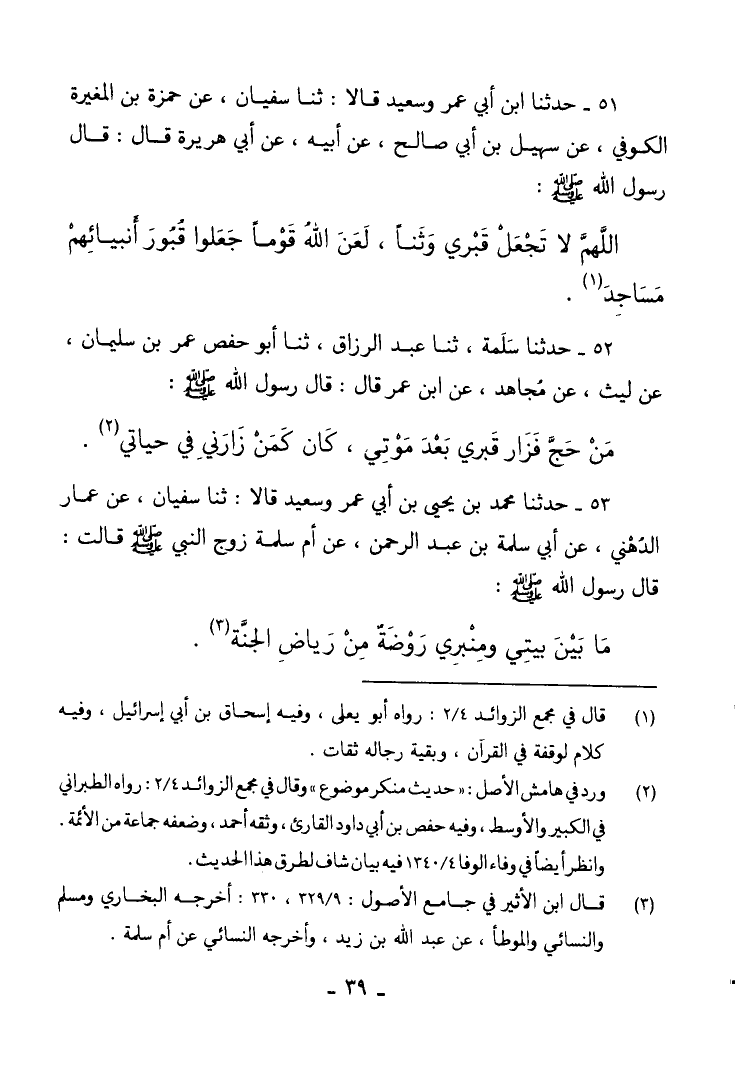 ٥١ ـ حدثنا ابن أبي عمر وسعيد قالا : ثنا سفيان ، عن حمزة بن المغيرة
الكوفي ، عن سهيل بن أبي صالح ، عن أبيه ، عن أبي هريرة قال : قال
رسول الله ﷺ :
اللَّهمَّ لا تَجْعَلْ قَبْري وَثَناً ، لَعَنَ اللهُ قَوْماً جَعَلوا قُبُورَ أَنبيائِهمْ
مَسَاجِدَ(١) .
٥٢ ـ حدثنا سَلَمة ، ثنا عبد الرزاق ، ثنا أبو حفص عمر بن سليمان ،
عن ليث ، عن مُجاهد ، عن ابن عمر قال : قال رسول الله ﷺ :
مَنْ حَجَّ فَزَار قَبري بَعْدَ مَوْتِي ، كَان كَمَنْ زَارَنِي فِي حياتي(٢) .
٥٣ ـ حدثنا محمد بن يحيى بن أبي عمر وسعيد قالا : ثنا سفيان ، عن عمار
الدُهْني ، عن أبي سلمة بن عبد الرحمن ، عن أم سلمة زوج النبي ﷺ قالت :
قال رسول الله ﷺ :
مَا بَيْنَ بيتِي ومِنْبرِي رَوْضَةٌ مِنْ رِيَاضِ الجنَّة(٣) .
(١) قال في مجمع الزوائد ٢/٤ : رواه أبو يعلى ، وفيه إسحاق بن أبي إسرائيل ، وفيه
كلام لوقفة في القرآن ، وبقية رجاله ثقات .
(٢) ورد في هامش الأصل : « حديث منكر موضوع » وقال في مجمع الزوائد ٢/٤ : رواه الطبراني
في الكبير والأوسط ، وفيه حفص بن أبي داود القارئ ، وثقه أحمد ، وضعفه جماعة من الأئمة .
وانظر أيضاً في وفاء الوفا ١٣٤٠/٤ فيه بيان شاف لطرق هذا الحديث .
(٣) قال ابن الأثير في جامع الأصول : ٣٢٩/٩ ، ٣٣٠ : أخرجه البخاري ومسلم
والنسائي والموطأ ، عن عبد الله بن زيد ، وأخرجه النسائي عن أم سلمة .
ـ ٣٩ ـ